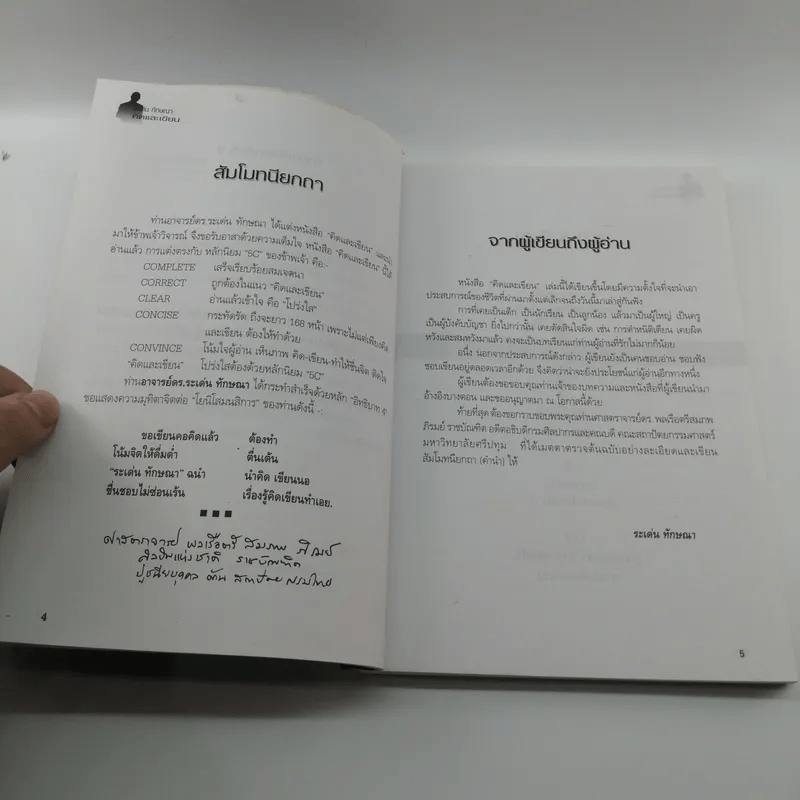 ทักษณา
คิดและเขียน
สัมโมทนียกถา
ท่านอาจารย์ดร.ระเด่น ทักษณา ได้แต่งหนังสือ "คิดและเขียน"
มาให้ข้าพเจ้าวิจารณ์ จึงขอรับอาสาด้วยความเต็มใจ หนังสือ "คิดและเขียน" นี้ได้
อ่านแล้ว การแต่งตรงกับ หลักนิยม "5C" ของข้าพเจ้า คือ:-
COMPLETE เสร็จเรียบร้อยสมเจตนา
CORRECT ถูกต้องในแนว "คิดและเขียน"
CLEAR อ่านแล้วเข้าใจ คือ "โปร่งใส"
CONCISE กระทัดรัด ถึงจะยาว 168 หน้า เพราะไม่แต่เพียงคิด
และเขียน ต้องให้ทำด้วย
CONVINCE โน้มใจผู้อ่าน เห็นภาพ คิด-เขียน-ทำให้ชื่นจิต ติดใจ
"คิดและเขียน" โปร่งใสต้องด้วยหลักนิยม "5C"
ท่านอาจารย์ดร.ระเด่น ทักษณา ได้กระทำสำเร็จด้วยหลัก "อิทธิบาท 4"
ขอแสดงความมุทิตาจิตต่อ "โยนิโสมนสิการ" ของท่านดังนี้ -:
ขอเขียนคอคิดแล้ว ต้องทำ
โน้มจิตให้ดื่มด่ำ ตื่นเต้น
"ระเด่น ทักษณา" ฉนำ นำคิด เขียนนอ
ชื่นชอบไม่ซ่อนเร้น เรื่องรู้คิดเขียนทำเอย.
ศาสตราจารย์ พลเรือตรี สมภพ ภิรมย์
ศิลปินแห่งชาติ ราชบัณฑิต
ปูชนียบุคคล ด้าน สถาปัตยกรรมไทย
4
จากผู้เขียนถึงผู้อ่าน
หนังสือ "คิดและเขียน" เล่มนี้ได้เขียนขึ้นโดยมีความตั้งใจที่จะนำเอา
ประสบการณ์ของชีวิตที่ผ่านมาตั้งแต่เล็กจนถึงวันนี้มาเล่าสู่กันฟัง
การที่เคยเป็นเด็ก เป็นนักเรียน เป็นลูกน้อง แล้วมาเป็นผู้ใหญ่ เป็นครู
เป็นผู้บังคับบัญชา ยิ่งไปกว่านั้น เคยตัดสินใจผิด เช่น การตำหนิติเตียน เคยผิด
หวังและสมหวังมาแล้ว คงจะเป็นบทเรียนแก่ท่านผู้อ่านที่รักไม่มากก็น้อย
อนึ่ง นอกจากประสบการณ์ดังกล่าว ผู้เขียนยังเป็นคนชอบอ่าน ชอบฟัง
ชอบเขียนอยู่ตลอดเวลาอีกด้วย จึงคิดว่าน่าจะยังประโยชน์แก่ผู้อ่านอีกทางหนึ่ง
ผู้เขียนต้องขอขอบคุณท่านเจ้าของบทความและหนังสือที่ผู้เขียนนำมา
อ้างอิงบางตอน และขออนุญาตมา ณ โอกาสนี้ด้วย
ท้ายที่สุด ต้องขอกราบขอบพระคุณท่านศาสตราจารย์ดร. พลเรือตรีสมภพ
ภิรมย์ ราชบัณฑิต อดีตอธิบดีกรมศิลปากรและคณบดี คณะสถาปัตยกรรมศาสตร์
มหาวิทยาลัยศรีปทุม ที่ได้เมตตาตรวจต้นฉบับอย่างละเอียดและเขียน
สัมโมทนียกถา (คำนำ) ให้
ระเด่น ทักษณา
5